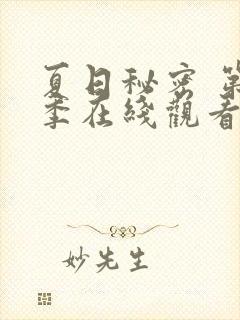 夏日秘密 第
季在綫觀看
妙先生